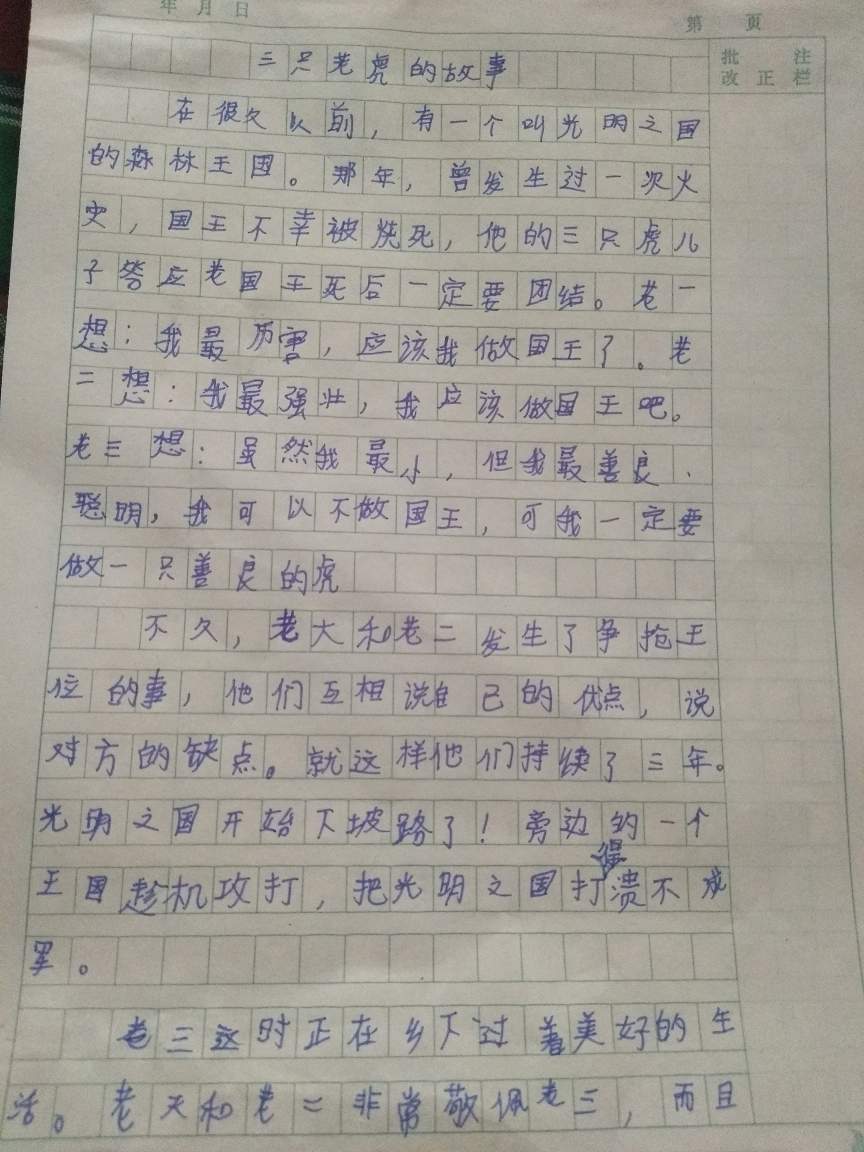 年 月 日
第 页
批 注
改 正 栏
三只老虎的故事
在很久以前，有一个叫光明之国
的森林王国。那年，曾发生过一次火
灾，国王不幸被烧死，他的三只虎儿
子答应老国王死后一定要团结。老一
想：我最厉害，应该我做国王了。老
二想：我最强壮，我应该做国王吧。
老三想：虽然我最小，但我最善良、
聪明，我可以不做国王，可我一定要
做一只善良的虎
不久，老大和老二发生了争抢王
位的事，他们互相说自己的优点，说
对方的缺点。就这样他们持续了三年。
光明之国开始下坡路了！旁边的一个
王国趁机攻打，把光明之国打得溃不成
军。
老三这时正在乡下过着美好的生
活。老大和老二非常敬佩老三，而且